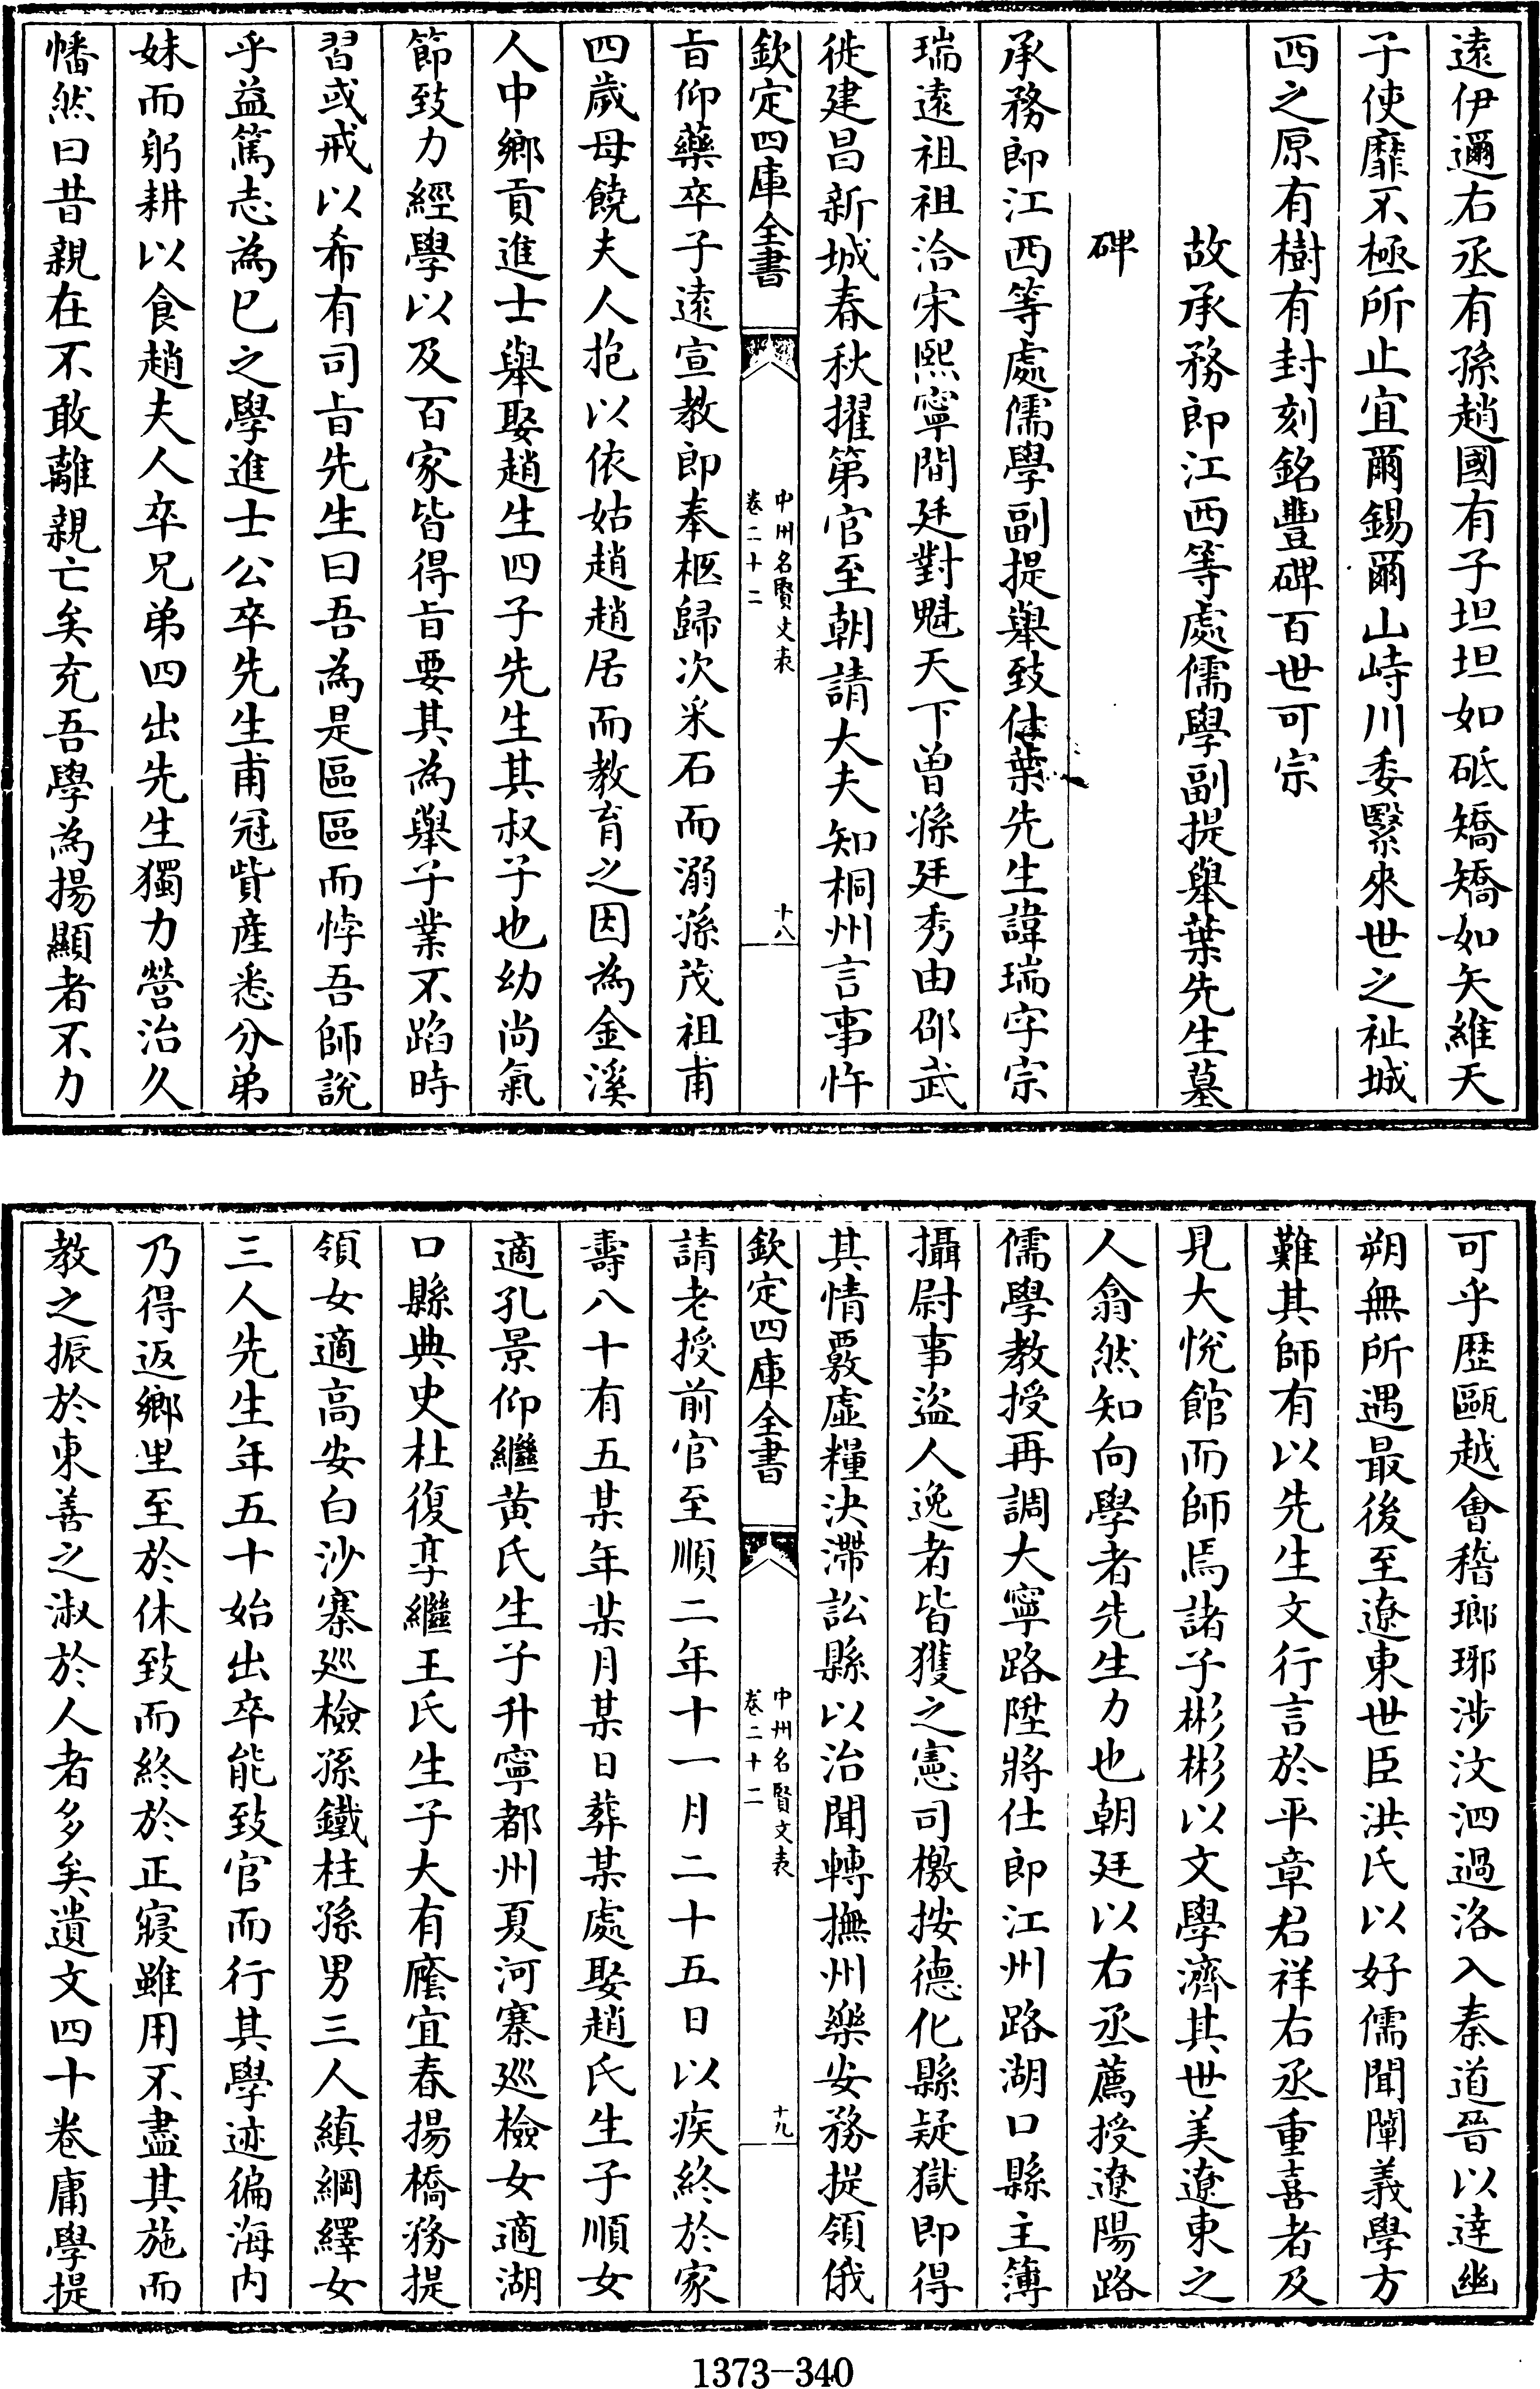 遠伊邇右丞有孫趙國有子坦坦如砥矯矯如矢維天
子使靡不極所止宜爾錫爾山峙川委繄來世之祉城
西之原有樹有封刻銘豐碑百世可宗
故承務郎江西等處儒學副提舉葉先生墓
碑
承務郎江西等處儒學副提舉致仕葉先生諱瑞字宗
瑞遠祖祖洽宋熙寧間廷對魁天下曽孫廷秀由邵武
徙建昌新城春秋擢第官至朝請大夫知桐州言事忤
欽定四庫全書
中州名賢文表
卷二十二
十八
㫖仰藥卒子遠宣教郎奉柩歸次采石而溺孫茂祖甫
四歲母饒夫人抱以依姑趙趙居而教育之因為金溪
人中鄉貢進士舉娶趙生四子先生其叔子也幼尚氣
節致力經學以及百家皆得㫖要其為舉子業不蹈時
習或戒以希有司㫖先生曰吾為是區區而悖吾師說
乎益篤志為已之學進士公卒先生甫冠貲産悉分弟
妹而躬耕以食趙夫人卒兄弟四出先生獨力營治久
幡然曰昔親在不敢離親亡矣充吾學為揚顯者不力
可乎歴甌越會稽瑯琊涉汶泗過洛入秦道晉以達幽
朔無所遇最後至遼東世臣洪氏以好儒聞闡義學方
難其師有以先生文行言於平章君祥右丞重喜者及
見大悅館而師焉諸子彬彬以文學濟其世美遼東之
人翕然知向學者先生力也朝廷以右丞薦授遼陽路
儒學教授再調大寧路陞將仕郎江州路湖口縣主簿
攝尉事盜人逸者皆獲之憲司檄按德化縣疑獄即得
其情覈虛糧決滯訟縣以治聞轉撫州樂安務提領俄
欽定四庫全書
中州名賢文表
卷二十二
十九
請老授前官至順二年十一月二十五日以疾終於家
壽八十有五某年某月某日葬某處娶趙氏生子順女
適孔景仰繼黃氏生子升寧都州夏河寨廵檢女適湖
口縣典史杜復亨繼王氏生子大有廕宜春揚橋務提
領女適高安白沙寨廵檢孫鐵柱孫男三人縝綱繹女
三人先生年五十始出卒能致官而行其學迹徧海内
乃得返鄉里至於休致而終於正寢雖用不盡其施而
教之振於東善之淑於人者多矣遺文四十卷庸學提
1373-340